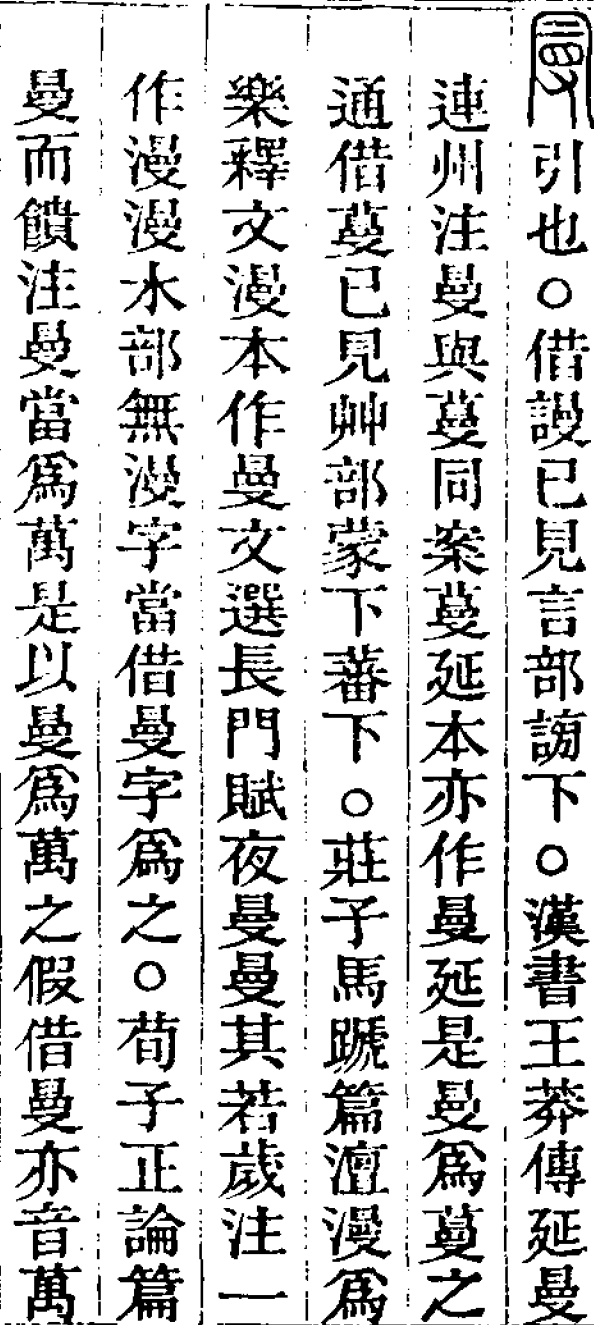 曼引也○借謾已見言部謗下○漢書王莽傳延曼
連州注曼與蔓同案蔓延本亦作曼延是曼爲蔓之
通借蔓已見艸部蒙下蕃下○莊子馬蹏篇澶漫爲
樂釋文漫本作曼文選長門賦夜曼曼其若歲注一
作漫漫水部無漫字當借曼字爲之○荀子正論篇
曼而饋注曼當爲萬是以曼爲萬之假借曼亦音萬